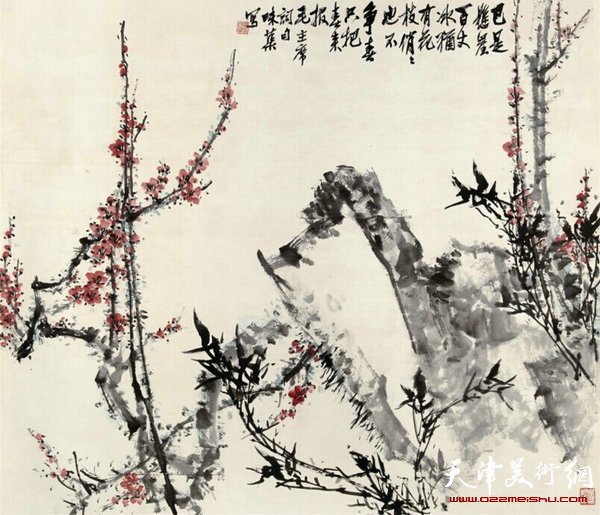 已是
懸崖
百丈
冰猶
有花
枝俏〻
也不
争春
只把
春来
报
毛主席
词句
味蕖
写
天津美術網
www.022meishu.com